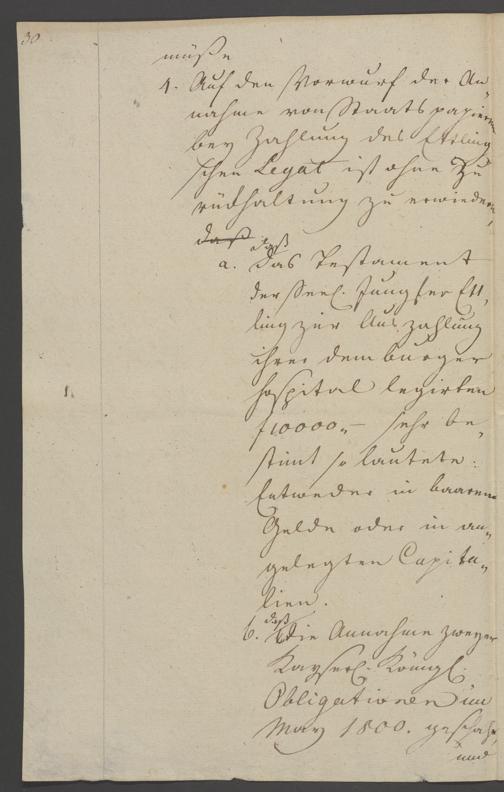 30
müße
4. Auf den Vorwurf der An„
nahme von Staatspapieren
bey Zahlung des Ettling„
schen Legat ist ohne Zu„
rückhaltung zu erwiedern,
daß
daß
a. Das Testament
der Seel. Jungfer Ett„
ling zur Auszahlung
ihrer dem burger
hospital legirten
f 10000„— sehr be„
stimt so lautete:
Entweder in baarem
Gelde oder in an„
gelegten Capita„
lien.
daß
b. die Annahme zweyer
Kayserl. Königl.
Obligationen im
May 1800. geschah,
und
1.